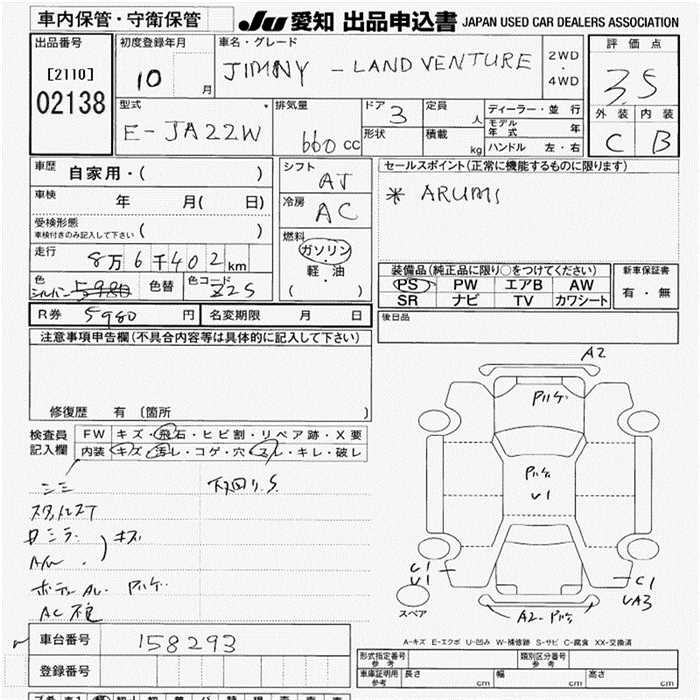 車内保管・守衛保管
JU 愛知 出品申込書 JAPAN USED CAR DEALERS ASSOCIATION
出品番号
[2110]
02138
初度登録年月
10 月
車名・グレード
JIMNY - LAND VENTURE
2WD
・
4WD
評価点
3.5
外装 内装
C B
型式
E-JA22W
排気量
660 cc
ドア 3
形状
定員 人
積載 kg
ディーラー・並行
モデル年式 年
ハンドル 左・右
車歴 自家用・( )
車検 年 月( 日)
受検形態
車検付きのみ記入して下さい ( )
走行 8万6千402km
色
シルバー 5980
色替
色コード
Z2S
シフト AT
冷房 AC
燃料
ガソリン
・
軽・油
( )
セールスポイント(正常に機能するものに限ります)
* ARUMI
装備品(純正品に限り○をつけてください)
PS PW エアB AW
SR ナビ TV カワシート
新車保証書
有・無
R券 5980 円
名変期限 月 日
後日品
注意事項申告欄(不具合内容等は具体的に記入して下さい)
修復歴 有 (箇所 )
検査員
記入欄
FW キズ・飛石・ヒビ割・リペア跡・X要
内装 キズ・汚レ・コゲ・穴・スレ・キレ・破レ
シミ
下回りS
キズ
A/W
AC不良
A2
V1
C1
V1
スペア
C1
UA3
A2
A-キズ E-エクボ U-凹み W-補修跡 S-サビ C-腐食 XX-交換済
車台番号 158293
登録番号
形式指定番号
参考
類別区分番号
参考
車庫証明用
参考
長さ cm 幅 cm 高さ cm